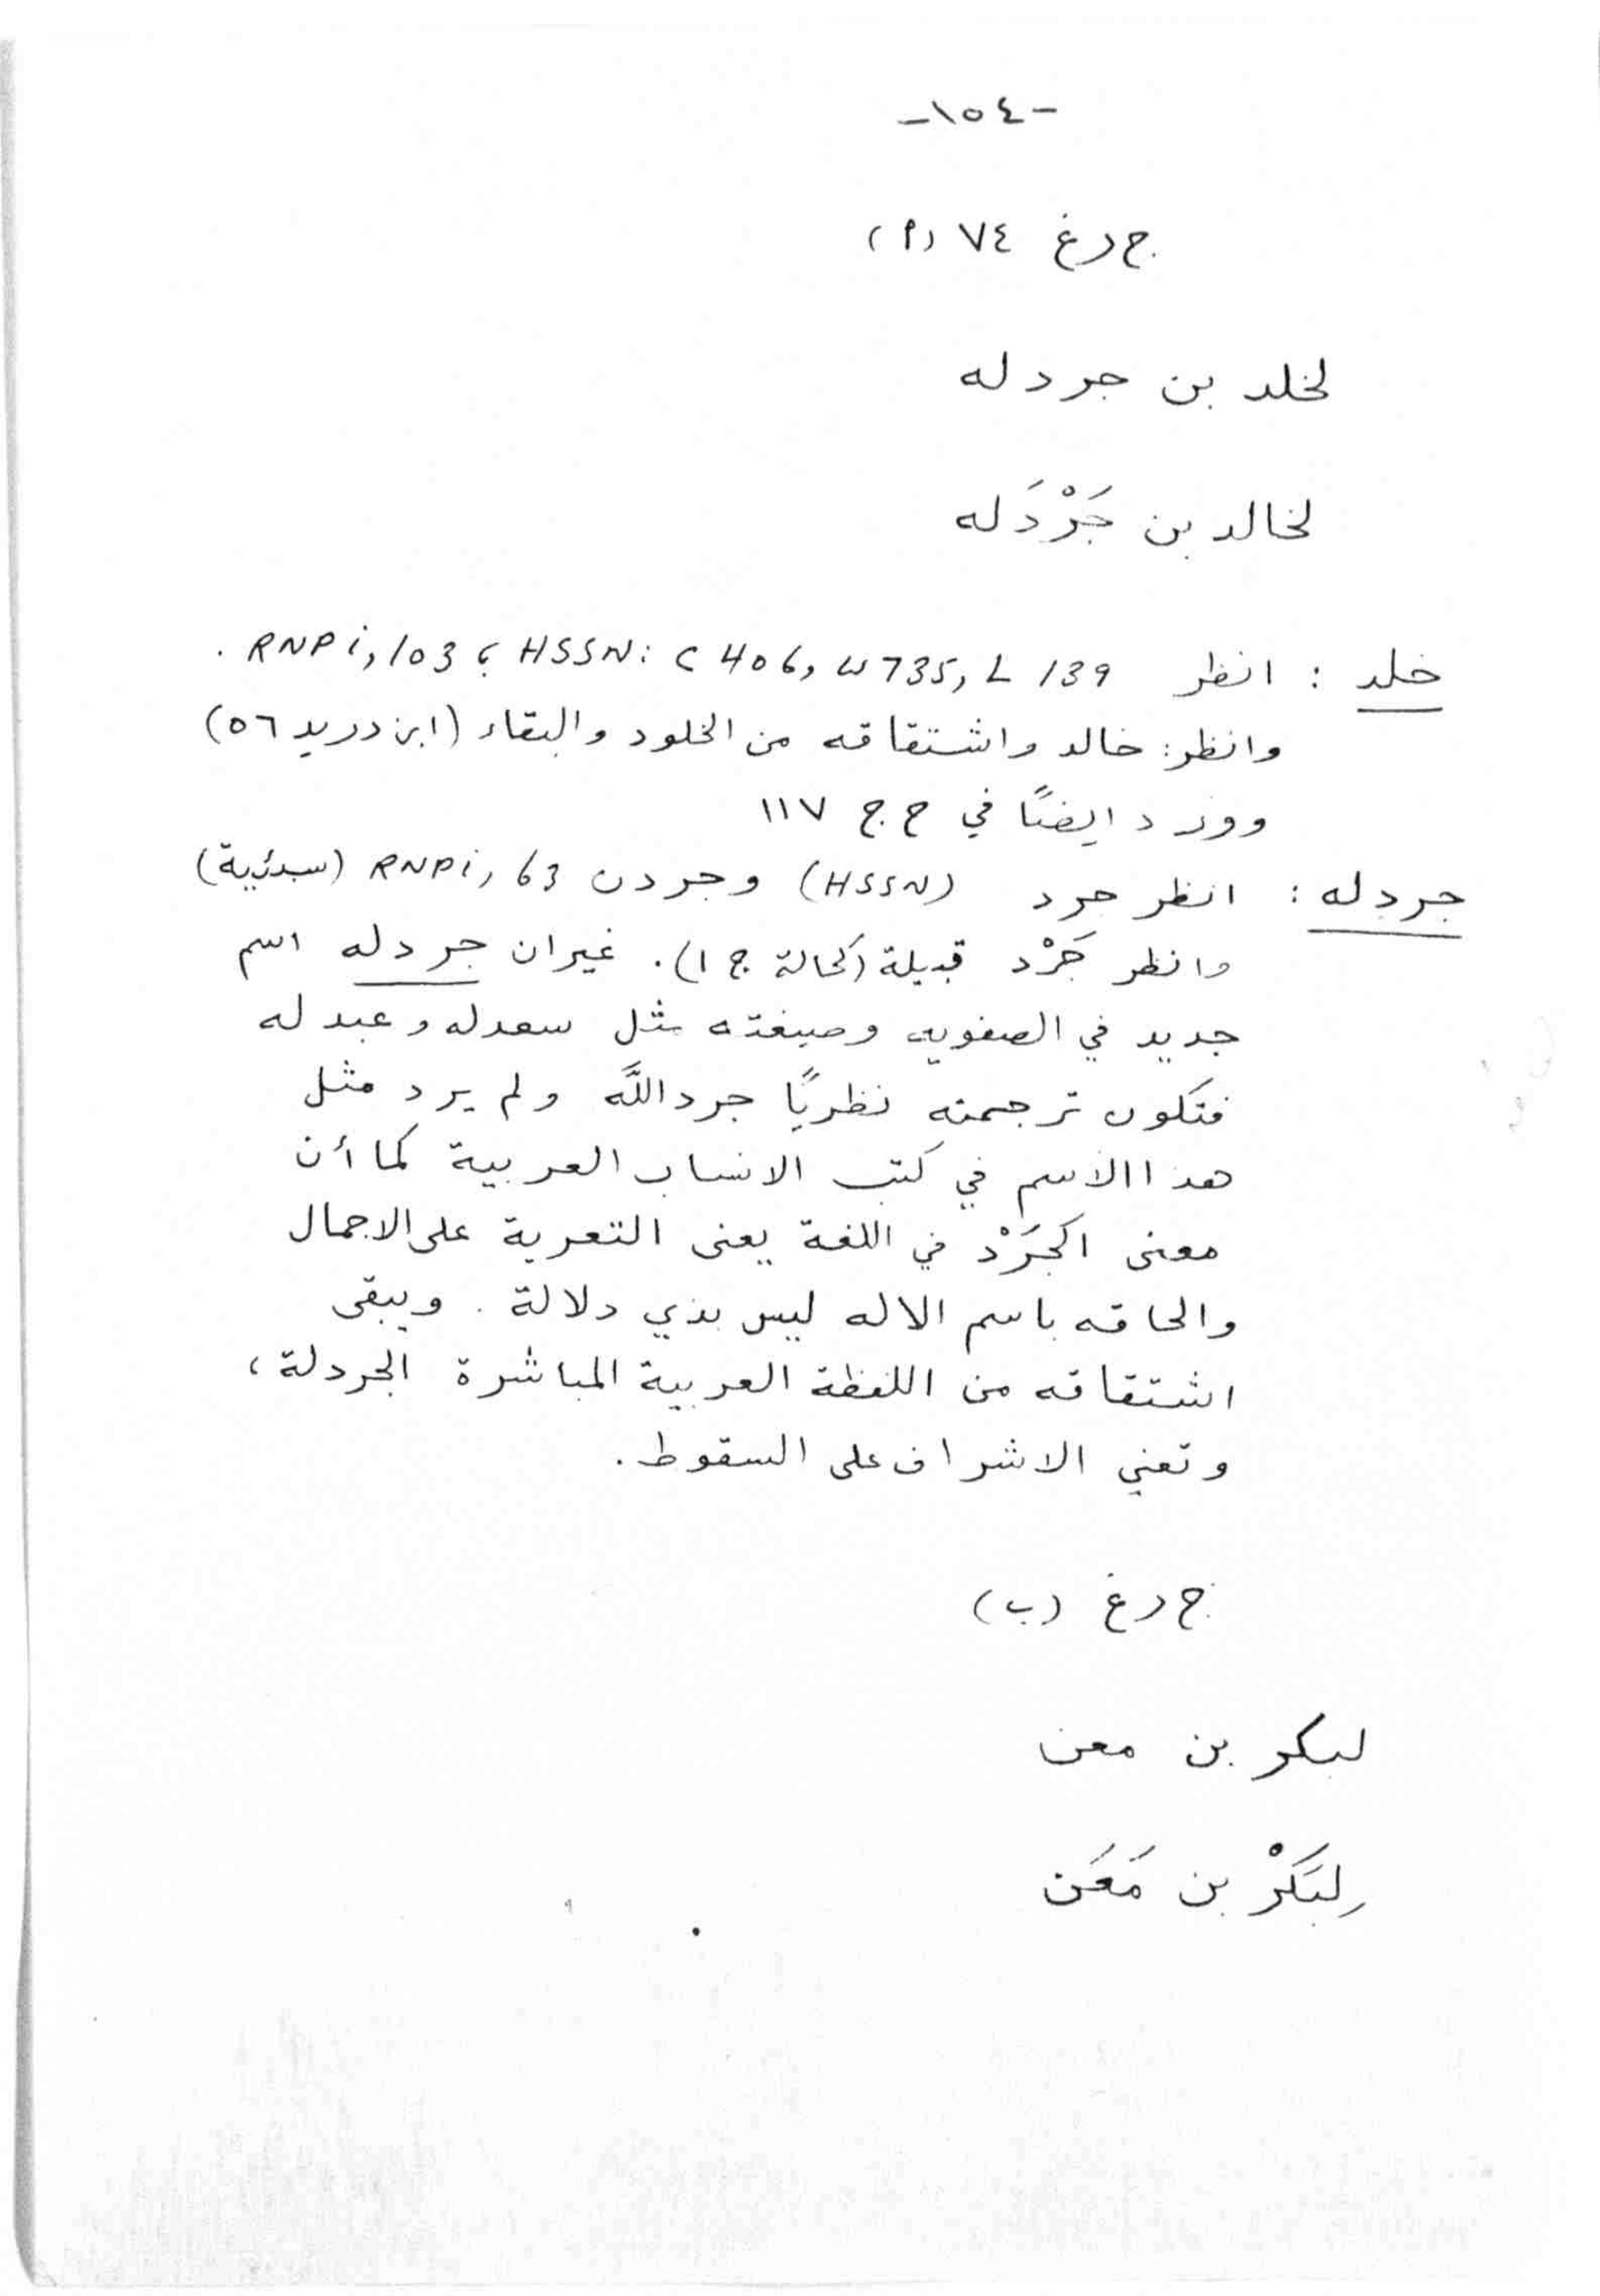 -١٥٤-
ج رغ ٧٤ (أ)
لخلد بن جردله
لخالد بن جَرْدَله
خلد : انظر RNP i, 103 ؛ HSSN: C 406, W 735, L 139 .
وانظر: خالد واشتقاقه من الخلود والبقاء (ابن دريد ٥٦)
وورد ايضًا في ح ج ١١٧
جردله : انظر جرد (HSSN) وجردن RNP i, 63 (سبئية)
وانظر جَرْد قبيلة (كحالة ج ١). غيران جردله اسم
جديد في الصفويه وصيغته مثل سعدله وعبدله
فتكون ترجمته نظريًا جردالله ولم يرد مثل
هذا الاسم في كتب الانساب العربية كما أن
معنى الجَرْد في اللغة يعنى التعرية على الاجمال
والحاقه باسم الاله ليس بذي دلالة . ويبقى
اشتقاقه من اللفظة العربية المباشرة الجردلة ،
وتعني الاشراف على السقوط .
ج رغ (ب)
لبكر بن معن
لِبَكْر بن مَعَن